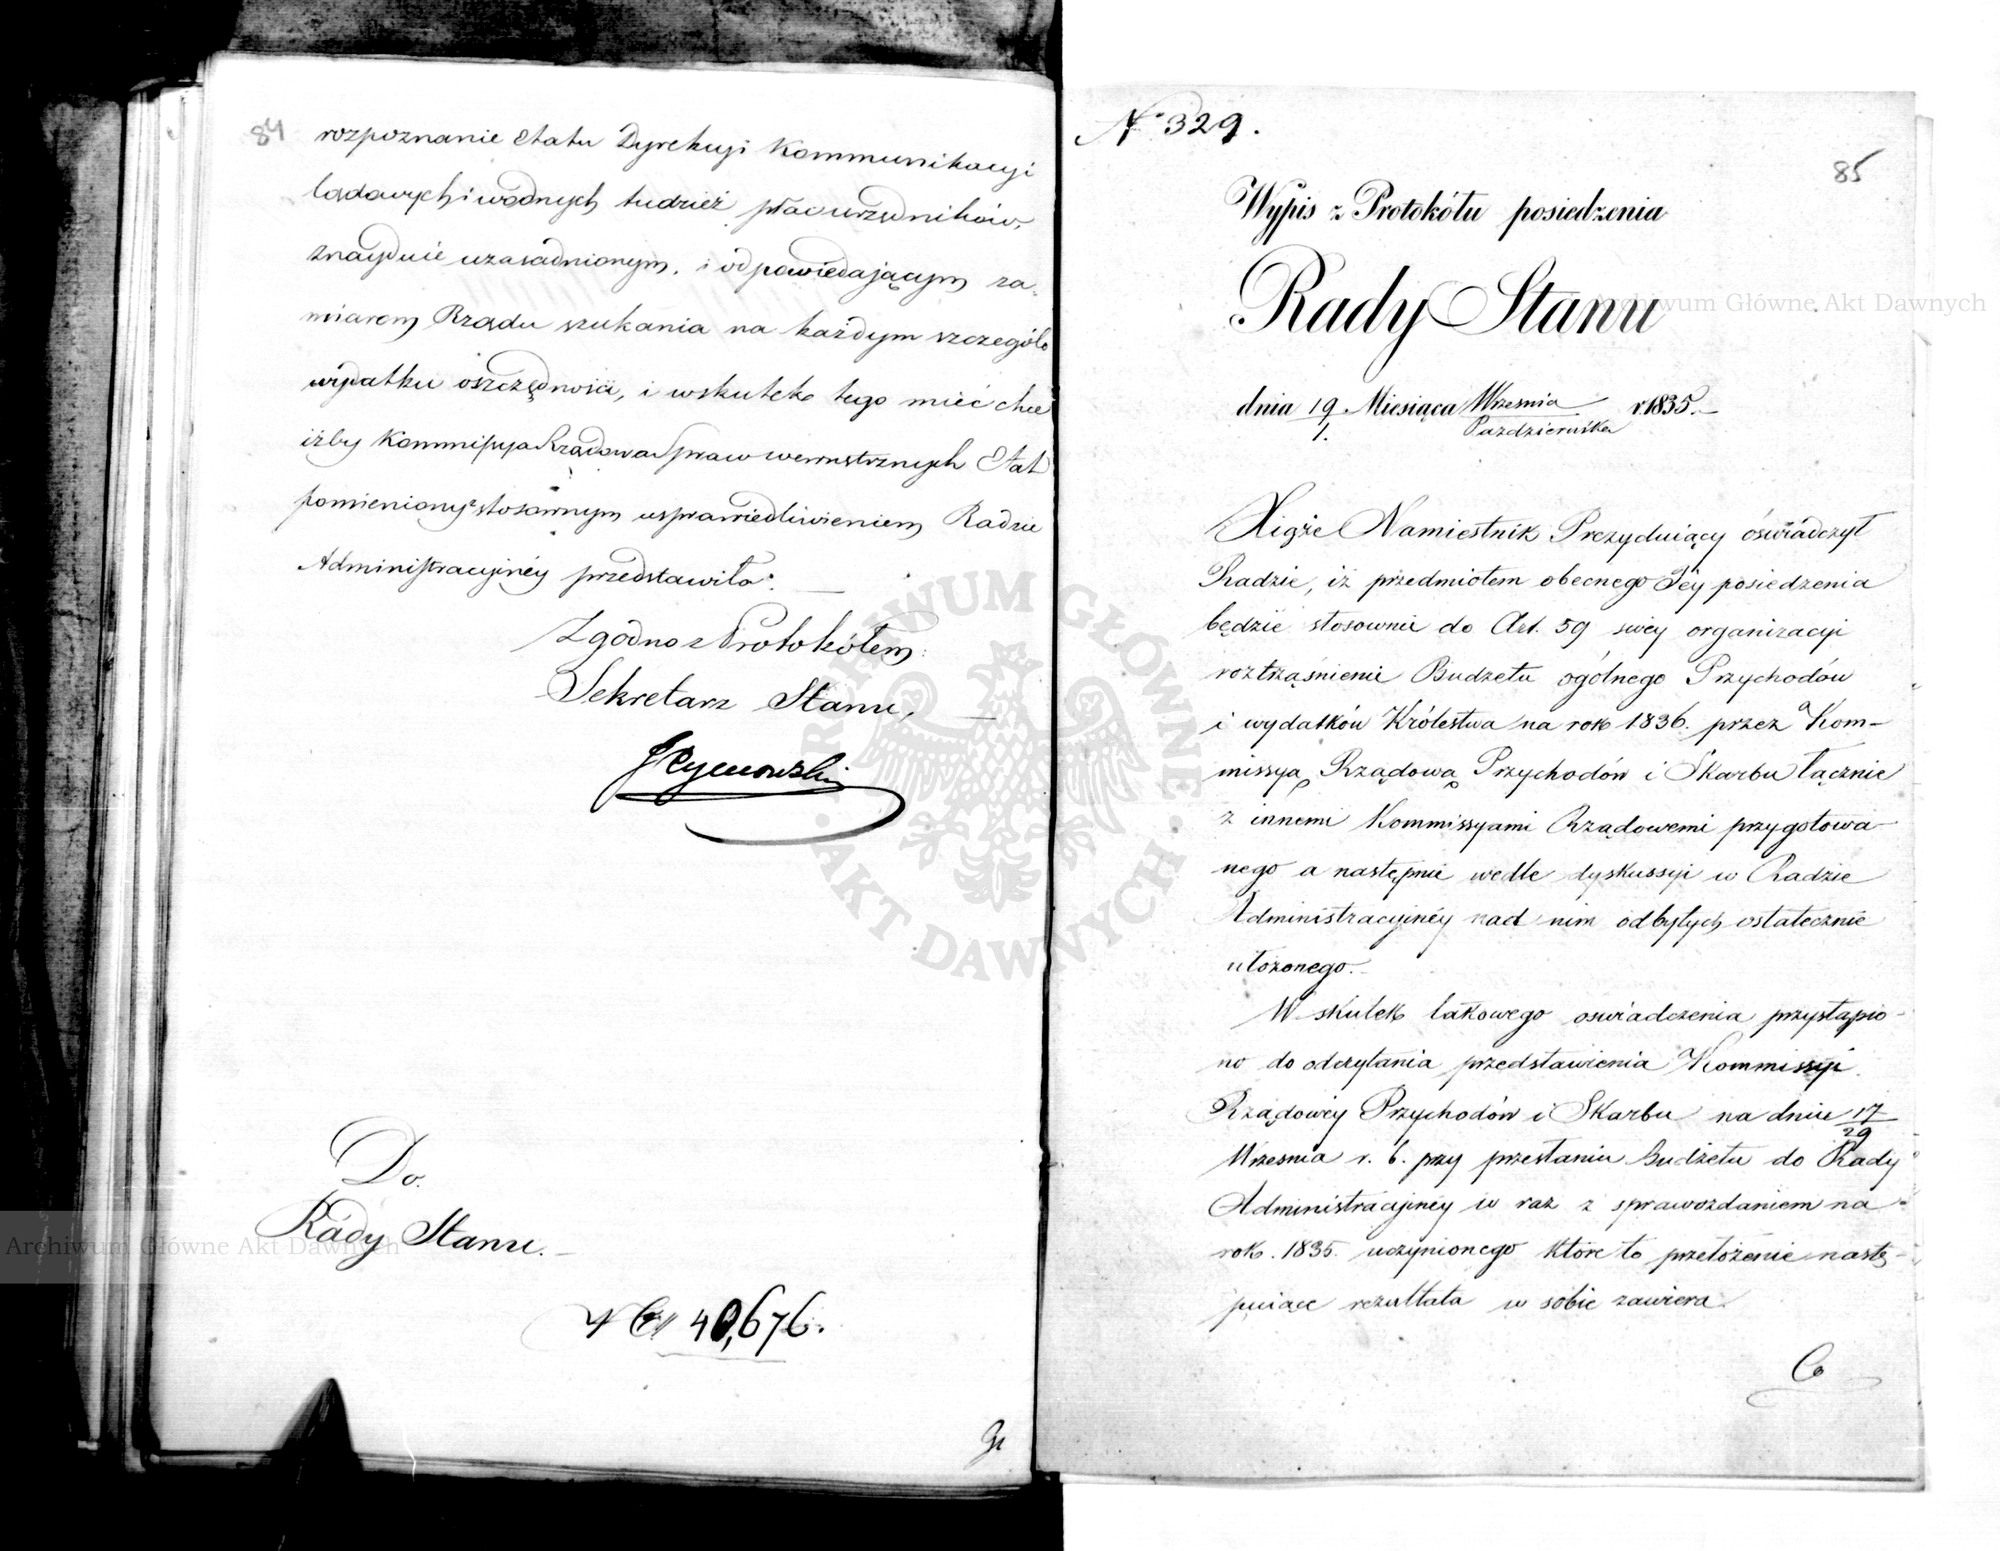 84
rozpoznanie Etatu Dyrekcyi Kommunikacyi
lądowych i wodnych tudzież płac urzędników,
znayduie uzasadnionym, i odpowiedającym za-
miarom Rządu szukania na każdym szczególe
wydatku oszczędności, i wskutek tego mieć chce
iżby Kommissya Rządowa Spraw wewnętrznych Etat
pomieniony z stosownym usprawiedliwieniem Radzie
Administracyinéy przedstawiła. —
Zgodno z Protokółem:
Sekretarz Stanu, —
Do
Rady Stanu. —
40,676.
N° 329.
85
Wypis z Protokółu posiedzenia
Rady Stanu
dnia 19/1. Miesiąca Września/Października r. 1835. —
Xiąże Namiestnik Prezyduiący oświadczył
Radzie, iż przedmiotem obecnego Jéy posiedzenia
będzie stosownie do Art. 59 swéy organizacyi
roztrząśnienie Budżetu ogólnego Przychodów
i wydatków Królestwa na rok 1836. przez Kom-
missyą Rządową Przychodów i Skarbu łącznie
z innemi Kommissyami Rządowemi przygotowa-
nego a następnie wedle dyskussyi w Radzie
Administracyinéy nad nim odbytych ostatecznie
ułożonego. —
W skutek takowego oświadczenia przystąpio-
no do odczytania przedstawienia Kommissyi
Rządowéy Przychodów i Skarbu na dniu 17/29
Września r. b. przy przesłaniu Budżetu do Rady
Administracyinéy w raz z sprawozdaniem na
rok 1835. uczynionego które to przełożenie nastę-
puiące rezultata w sobie zawiera.
Co
Archiwum Główne Akt Dawnych
Archiwum Główne Akt Dawnych
ARCHIWUM GŁÓWNE · AKT DAWNYCH ·